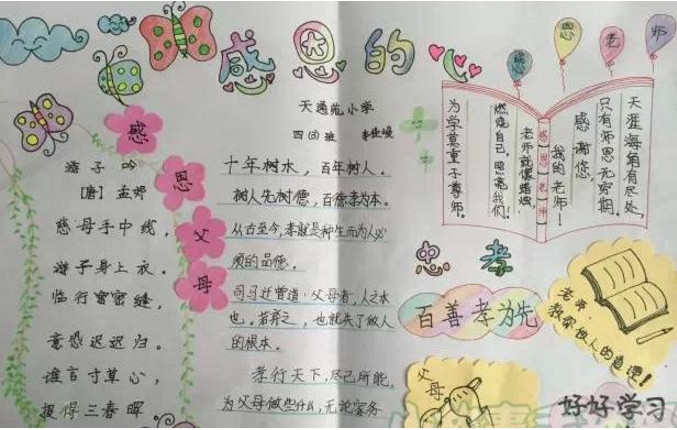 感恩的心
天通苑小学
四(3)班
感恩父母
游子吟
[唐] 孟郊
慈母手中线，
游子身上衣。
临行密密缝，
意恐迟迟归。
谁言寸草心，
报得三春晖
十年树木，百年树人。
树人先树德，百德孝为本。
从古至今，孝就是种生而为人必
须的品德。
司马迁曾道：父母者，人之本
也。若弃之，也就失了做人
的根本。
孝行天下，尽己所能，
为父母做些什么，无论家务
恩老师
天涯海角有尽处，
只有师恩无穷期。
感谢您，
我的老师！
感恩老师
老师就像蜡烛，
燃烧自己，照亮我们。
为学莫重于尊师。
忠孝
百善孝为先
老师，
我做人的道理！
父母
好好学习